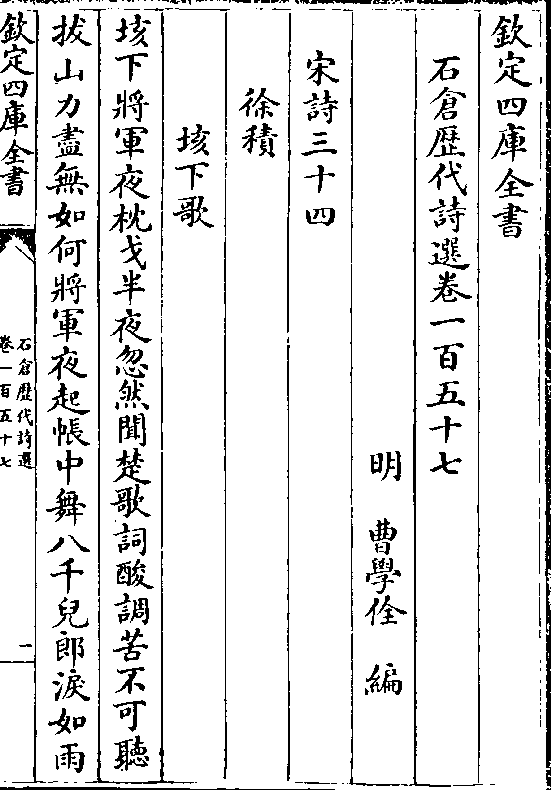 欽定四庫全書
石倉歴代詩選卷一百五十七
明　曹學佺　編
宋詩三十四
徐積
垓下歌
垓下將軍夜枕戈半夜忽然聞楚歌詞酸調苦不可聽
拔山力盡無如何將軍夜起帳中舞八千兒郎淚如雨
欽定四庫全書
石倉歷代詩選
卷一百五十七
一